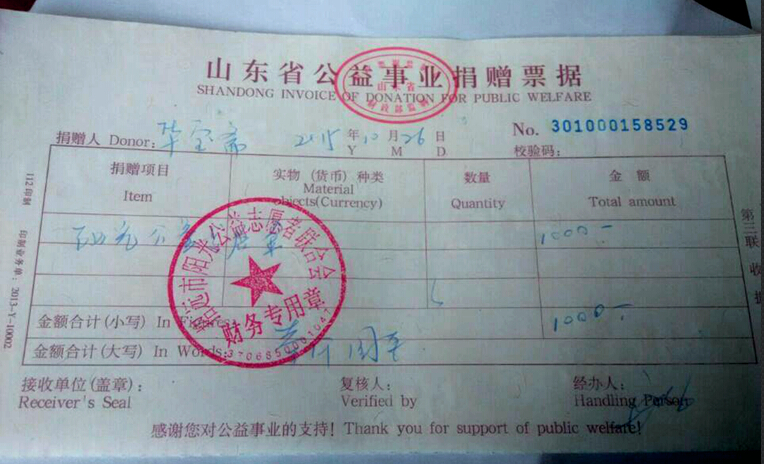 山东省公益事业捐赠票据
SHANDONG INVOICE OF DONATION FOR PUBLIC WELFARE
捐赠人 Donor: 华宝斋 2015 年 10 月 26 日 No. 301000158529
Y M D 校验码:
捐赠项目 实物 (货币) 种类 数量 金额
Item Material objects(Currency) Quantity Total amount
1000-
金额合计(小写) In Figures 1000-
金额合计(大写) In Words:
接收单位(盖章): 复核人: 经办人:
Receiver's Seal Verified by Handling Person
感谢您对公益事业的支持! Thank you for support of public welfare!
招远市阳光公益志愿者联合会
财务专用章
3706850001047
112印制 印制业务单: 2013-Y-10002
第三联 收据